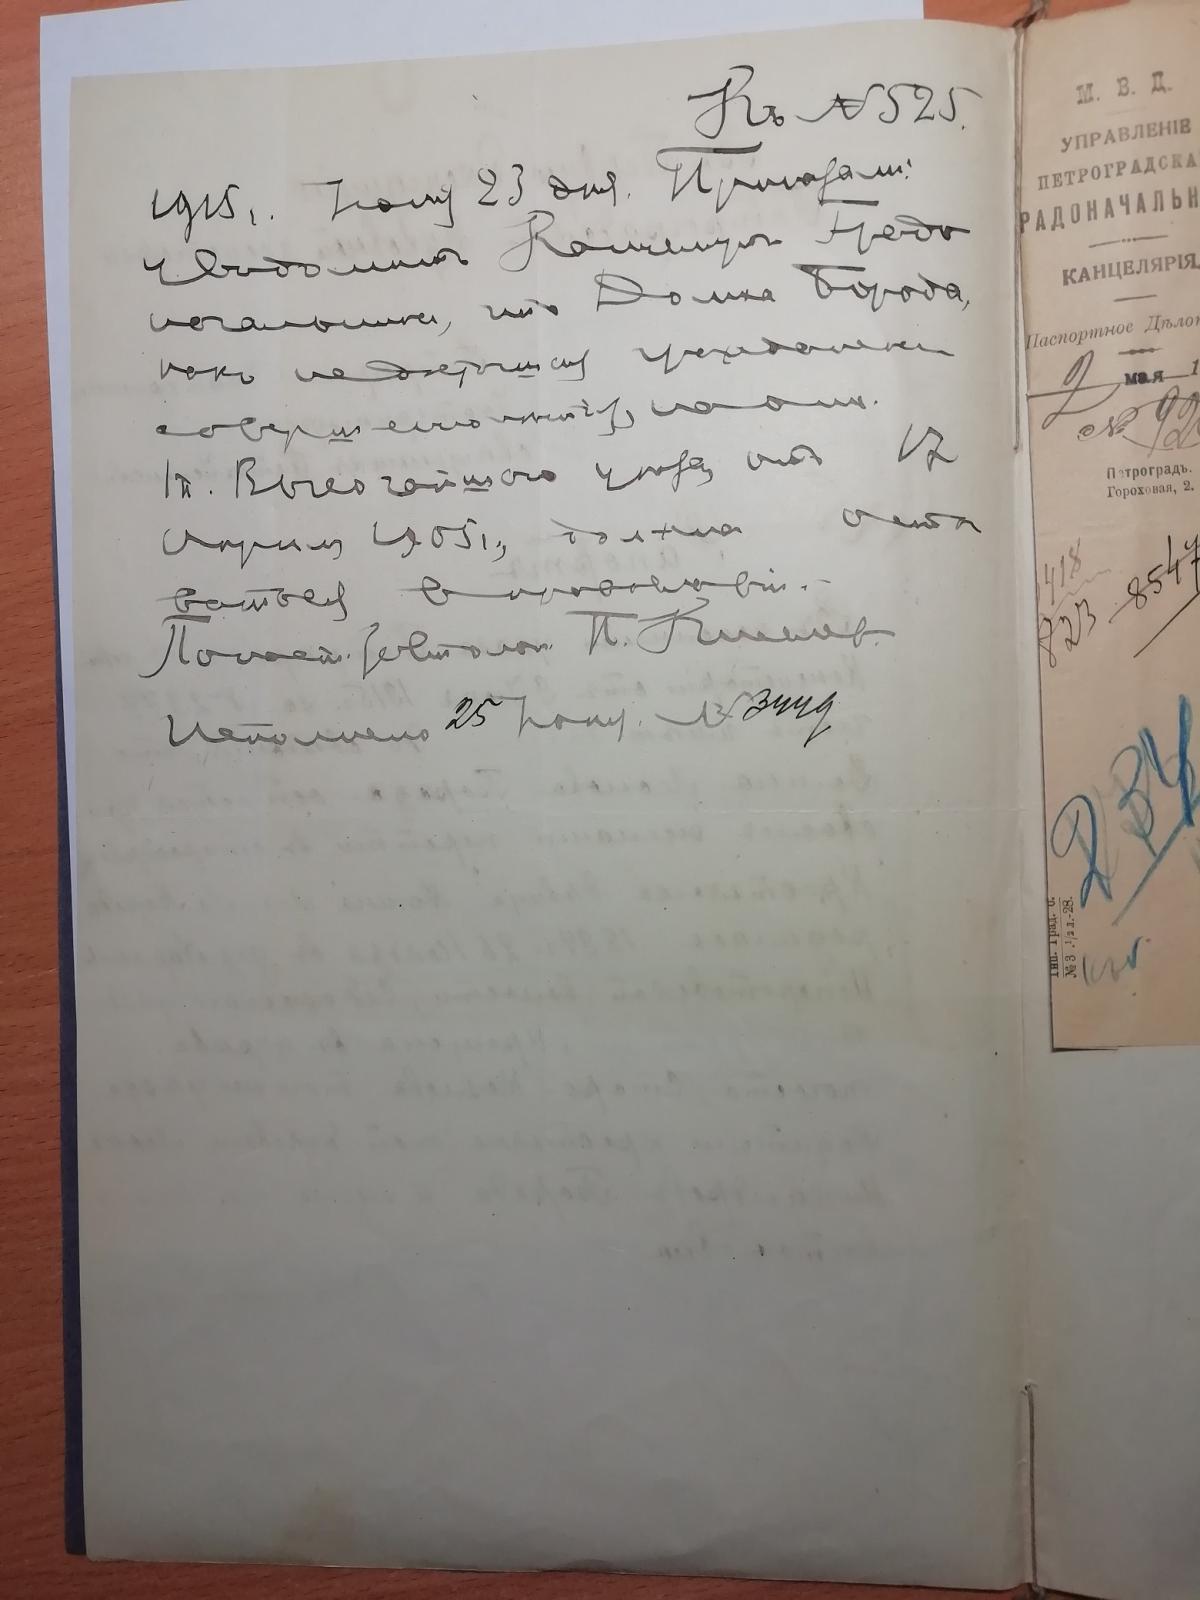 Къ № 525.
1915 г. Iюня 23 дня. Приказали:
увѣдомить Канцелярiю Градо
начальника, что Домна Борода,
какъ не достигшая гражданскаго
совершеннолѣтiя, на осн.
Iп. Высочайшаго указа отъ 17
Апрѣля 1905 г., должна оста
ваться въ православiи.
Исполнено 25 Iюня № 3449
М. В. Д.
УПРАВЛЕНІЕ
ПЕТРОГРАДСКА
РАДОНАЧАЛЬН
КАНЦЕЛЯРІЯ
Паспортное Дѣлоп
2 мая 1
№
Петроградъ.
Гороховая, 2.
418
823
8547
Тип. Град. б.
№ 3 ½ л.-28.